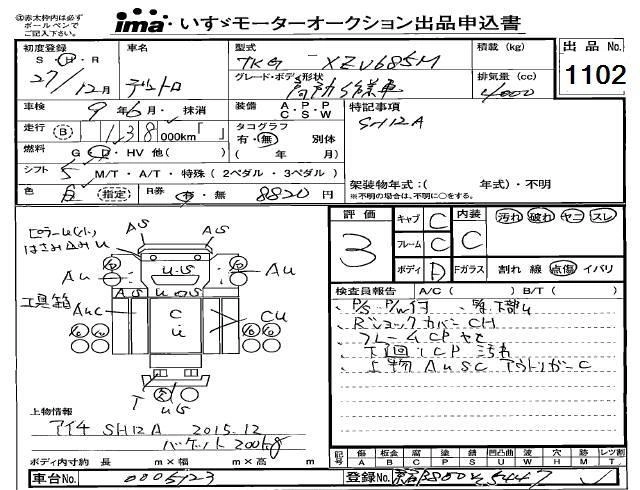 ◎赤太枠内は必ず
ボールペンで
ご記入ください。
ima・いすゞモーターオークション出品申込書
初度登録
S・H・R
27/12月
車名
デュトロ
型式
TKG - XZU685M
積載 (kg)
出品 No.
1102
グレード・ボディ形状
高所作業車
排気量 (cc)
4000
車検 9年6月・抹消
装備 A.P.P C.S.W
特記事項
SH12A
走行 (B) 138 000km「 」
タコグラフ
有・無 別体
( 年 月)
燃料 G・D・HV 他( )
シフト 5 M/T・A/T・特殊 ( 2ペダル・3ペダル )
架装物年式：( 年式)・不明
※不明の場合は、不明に○をする。
色 白 (指定) R券 有・無 8820円
評価
3
キャブ C
内装 C
汚れ 破れ ヤニ スレ
フレーム C
ボディ D
Fガラス 割れ 線 点傷 イバリ
ピラーU(大)
はさみこみU
AS
AS
AU
U・S
AU
工具箱
AS U・S
AUC
C
U
CU
T
U・S
検査員報告 A/C ( ) B/T ( )
、P/S P/W付
、Rショックカバー CH
、フレーム CP サビ
、下回り CP
、上物 AUSC アウトリガーC
上物情報
アイチ SH12A 2015.12
バケット 200kg
ボディ内寸約 長 m×幅 m×高 m
記号
傷 A
板金 B
腐 C
塗 P
錆 S
凹凸曲 U
波 W
穴 H
交換跡 M
レツ割 T
車台No. 0005723
登録No.